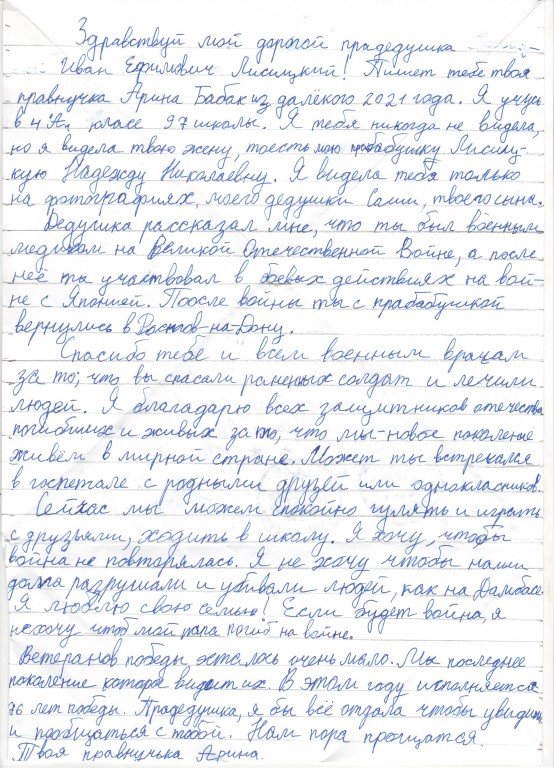 Здравствуй мой дорогой прадедушка
Иван Ефимович Лисицкий! Пишет тебе твоя
правнучка Арина Бабак из далёкого 2021 года. Я учусь
в 4"А" класе 97 школы. Я тебя никогда не видела,
но я видела твою жену, тоесть мою прабабушку Лисиц-
кую Надежду Николаевну. Я видела тебя только
на фотографиях, моего дедушки Саши, твоего сына.
Дедушка рассказал мне, что ты был военным
медиком на Великой Отечественной Войне, а после
неё ты участвовал в боевых действиях на вой-
не с Японией. Поосле войны ты с прабабушкой
вернулись в Ростов-на-Дону.
Спасибо тебе и всем военным врачам
за то, что вы спасали раненных солдат и лечили
людей. Я благадарю всех защитников отечества
погибших и живых за то, что мы-новое поколение
живём в мирной стране. Может ты встречался
в госпетале с родными друзей или однокласников.
Сейчас мы можем спокойно гулять и играть
с друзьями, ходить в школу. Я хочу, чтобы
война не повторялась. Я не хочу чтобы наши
дома разрушали и убивали людей, как на Дамбасе.
Я люблю свою семью! Если будет война, я
не хочу чтоб мой папа погиб на войне.
Ветеранов победы осталось очень мало. Мы последнее
поколение которе видит их. В этом году исполняется
76 лет победы. Прадедушка, я бы всё отдала чтобы увидить
и пообщаться с тобой. Нам пора прощатся.
Твоя правнучька Арина.